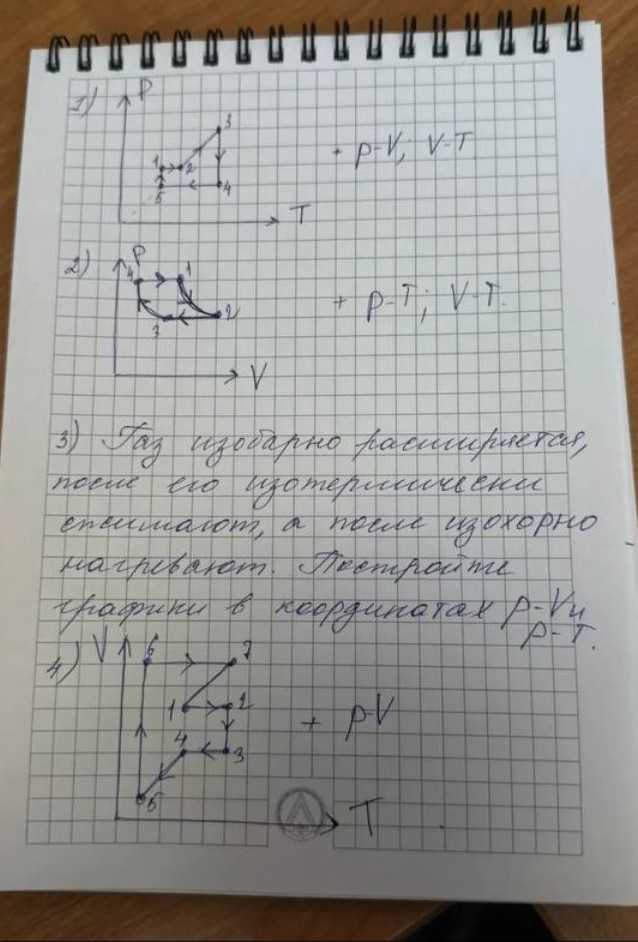 1) P
3
1 2 + p-V; V-T
5 4
T
2) P
4 1
+ p-T; V-T.
3 2
V
3) Газ изобарно расширяется,
после его изотермически
сжимают, а после изохорно
нагревают. Постройте
графики в координатах p-V и
p-T.
4) V 6 7
1 2 + p-V
4 3
5
T